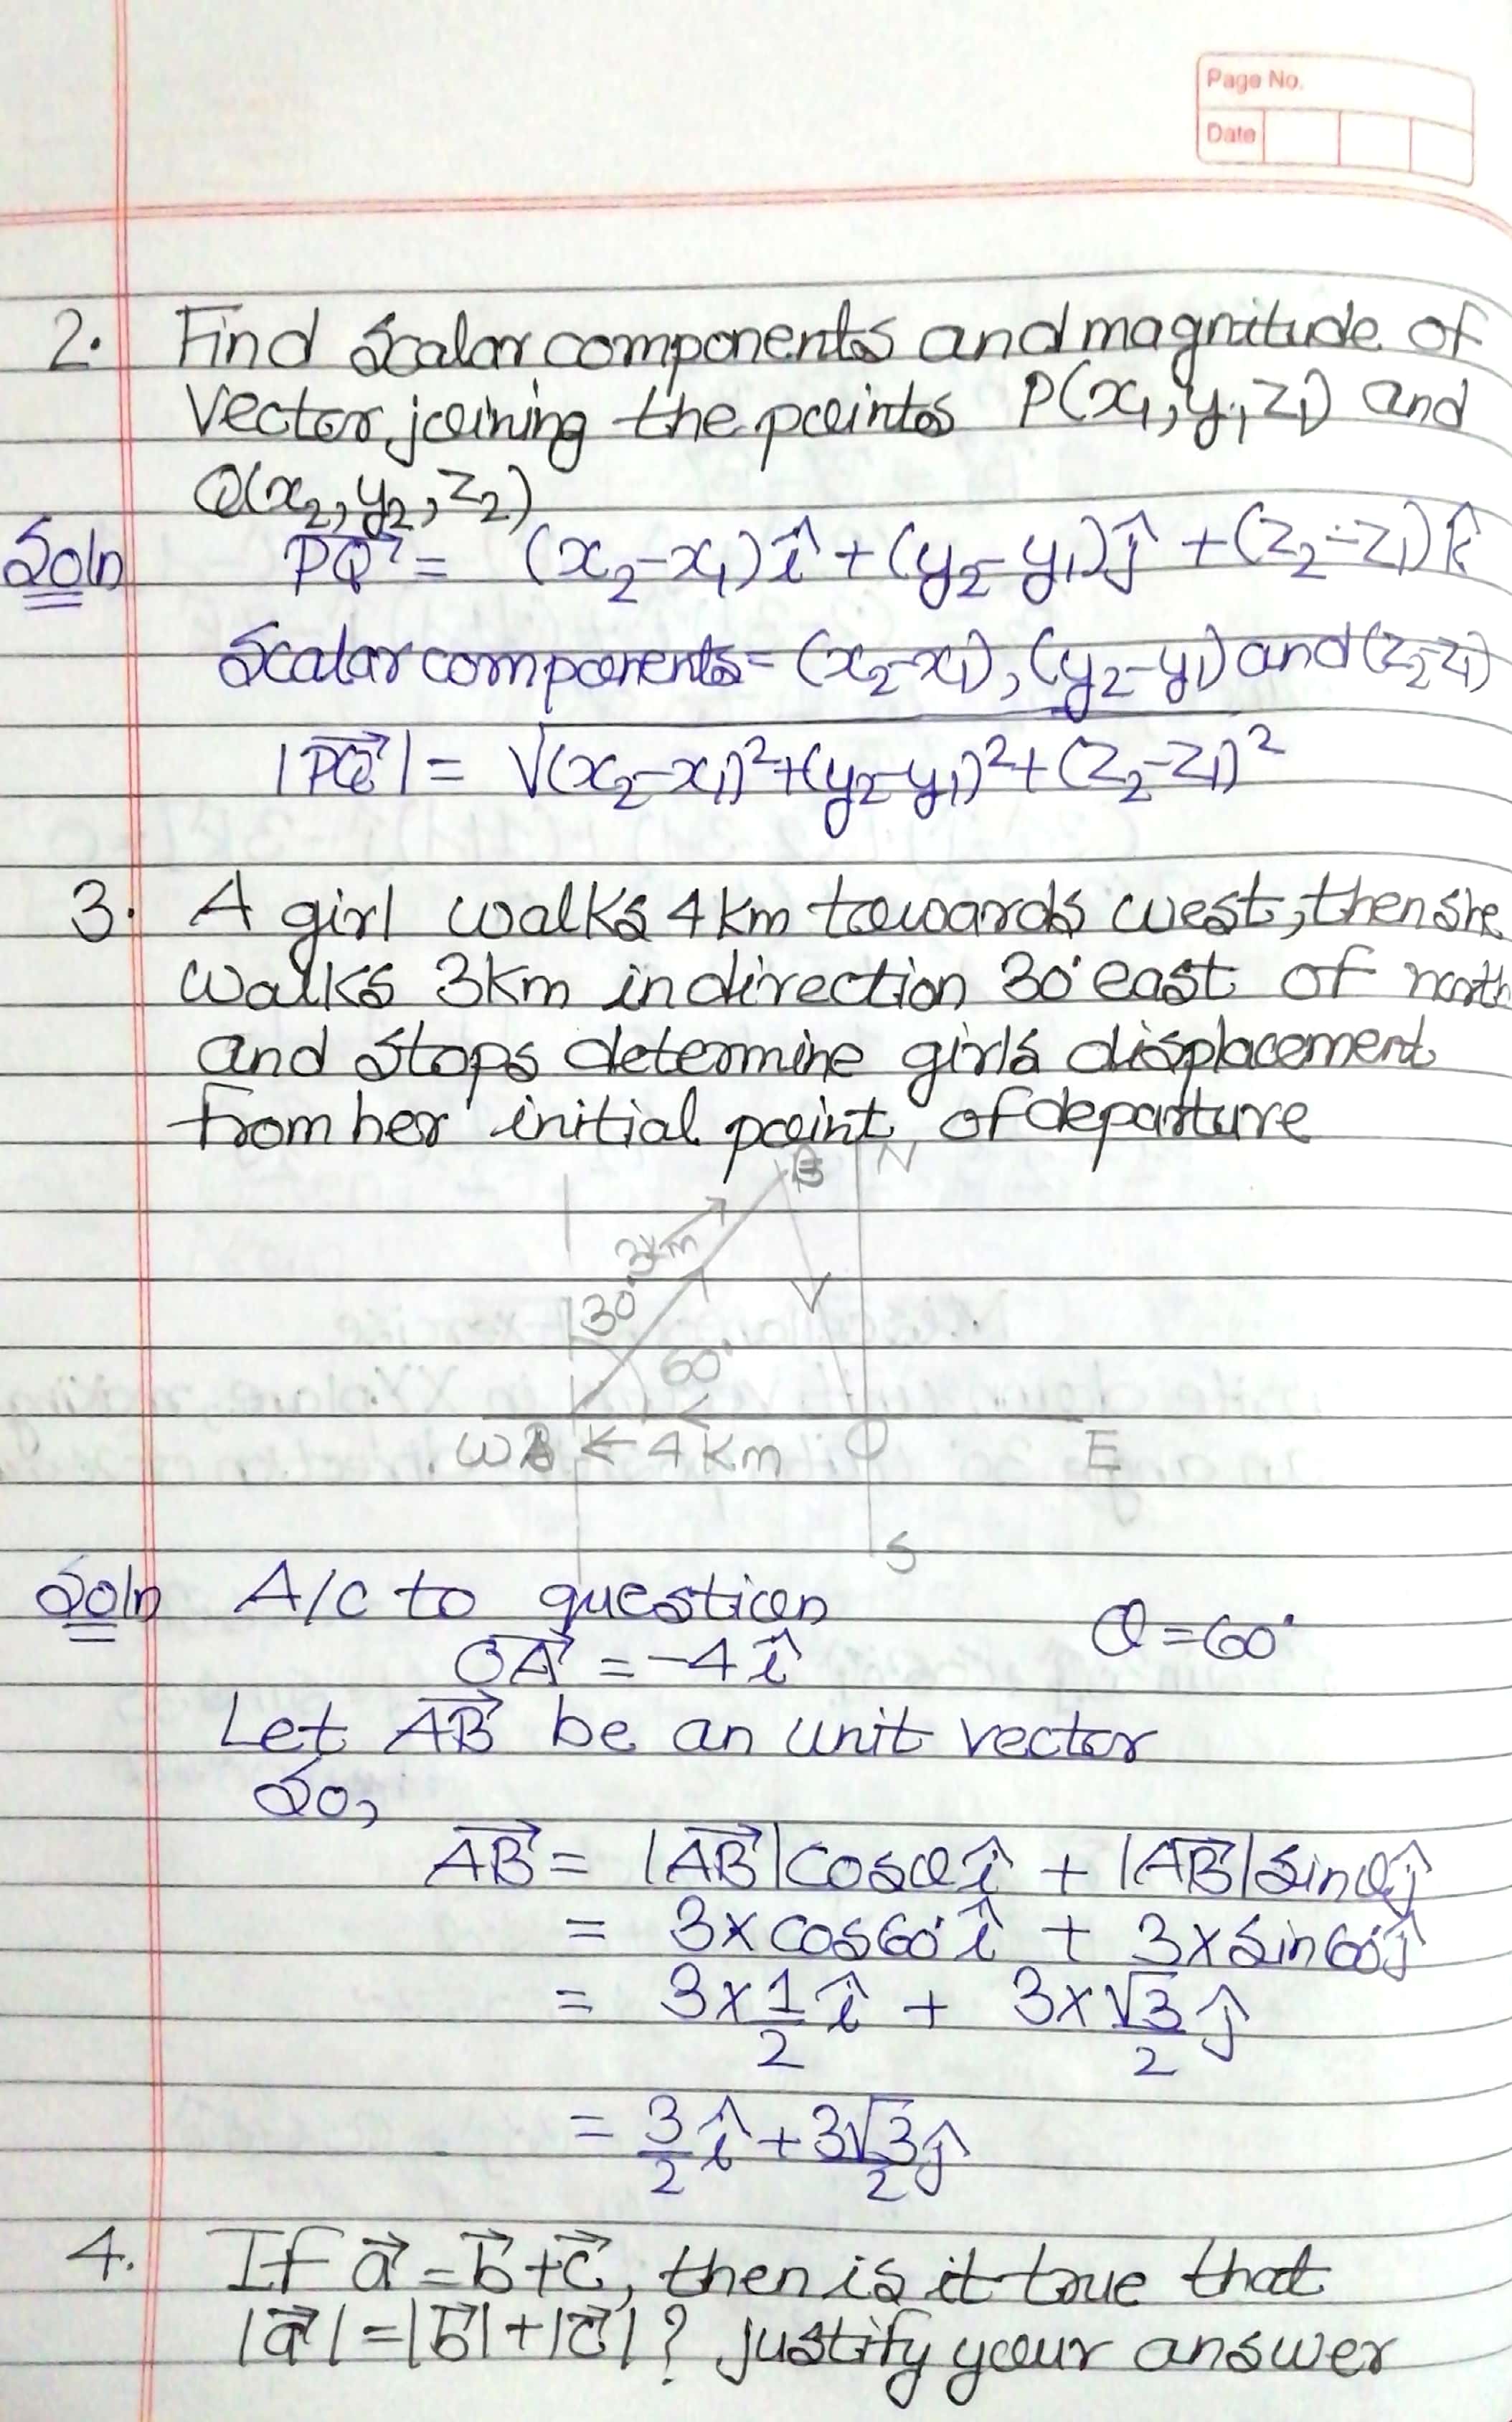 Page No.
Date
2. Find scalar components and magnitude of
vector joining the points P(x₁, y₁, z₁) and
Q(x₂, y₂, z₂)
Soln PQ⃗ = (x₂-x₁)î + (y₂-y₁)ĵ + (z₂-z₁)k̂
Scalar components = (x₂-x₁), (y₂-y₁) and (z₂-z₁)
|PQ⃗| = √(x₂-x₁)²+(y₂-y₁)²+(z₂-z₁)²
3. A girl walks 4 km towards west, then she
walks 3km in direction 30° east of north
and stops determine girls displacement
from her initial point of departure
B N
3km
30°
60°
W A ← 4 km O E
S
Soln A/c to question θ = 60°
OA⃗ = -4î
Let AB⃗ be an unit vector
So,
AB⃗ = |AB⃗|cosθî + |AB⃗|sinθĵ
= 3×cos60°î + 3×sin60°ĵ
= 3×1/2 î + 3×√3/2 ĵ
= 3/2 î + 3√3/2 ĵ
4. If a⃗ = b⃗+c⃗, then is it true that
|a⃗| = |b⃗|+|c⃗|? justify your answer